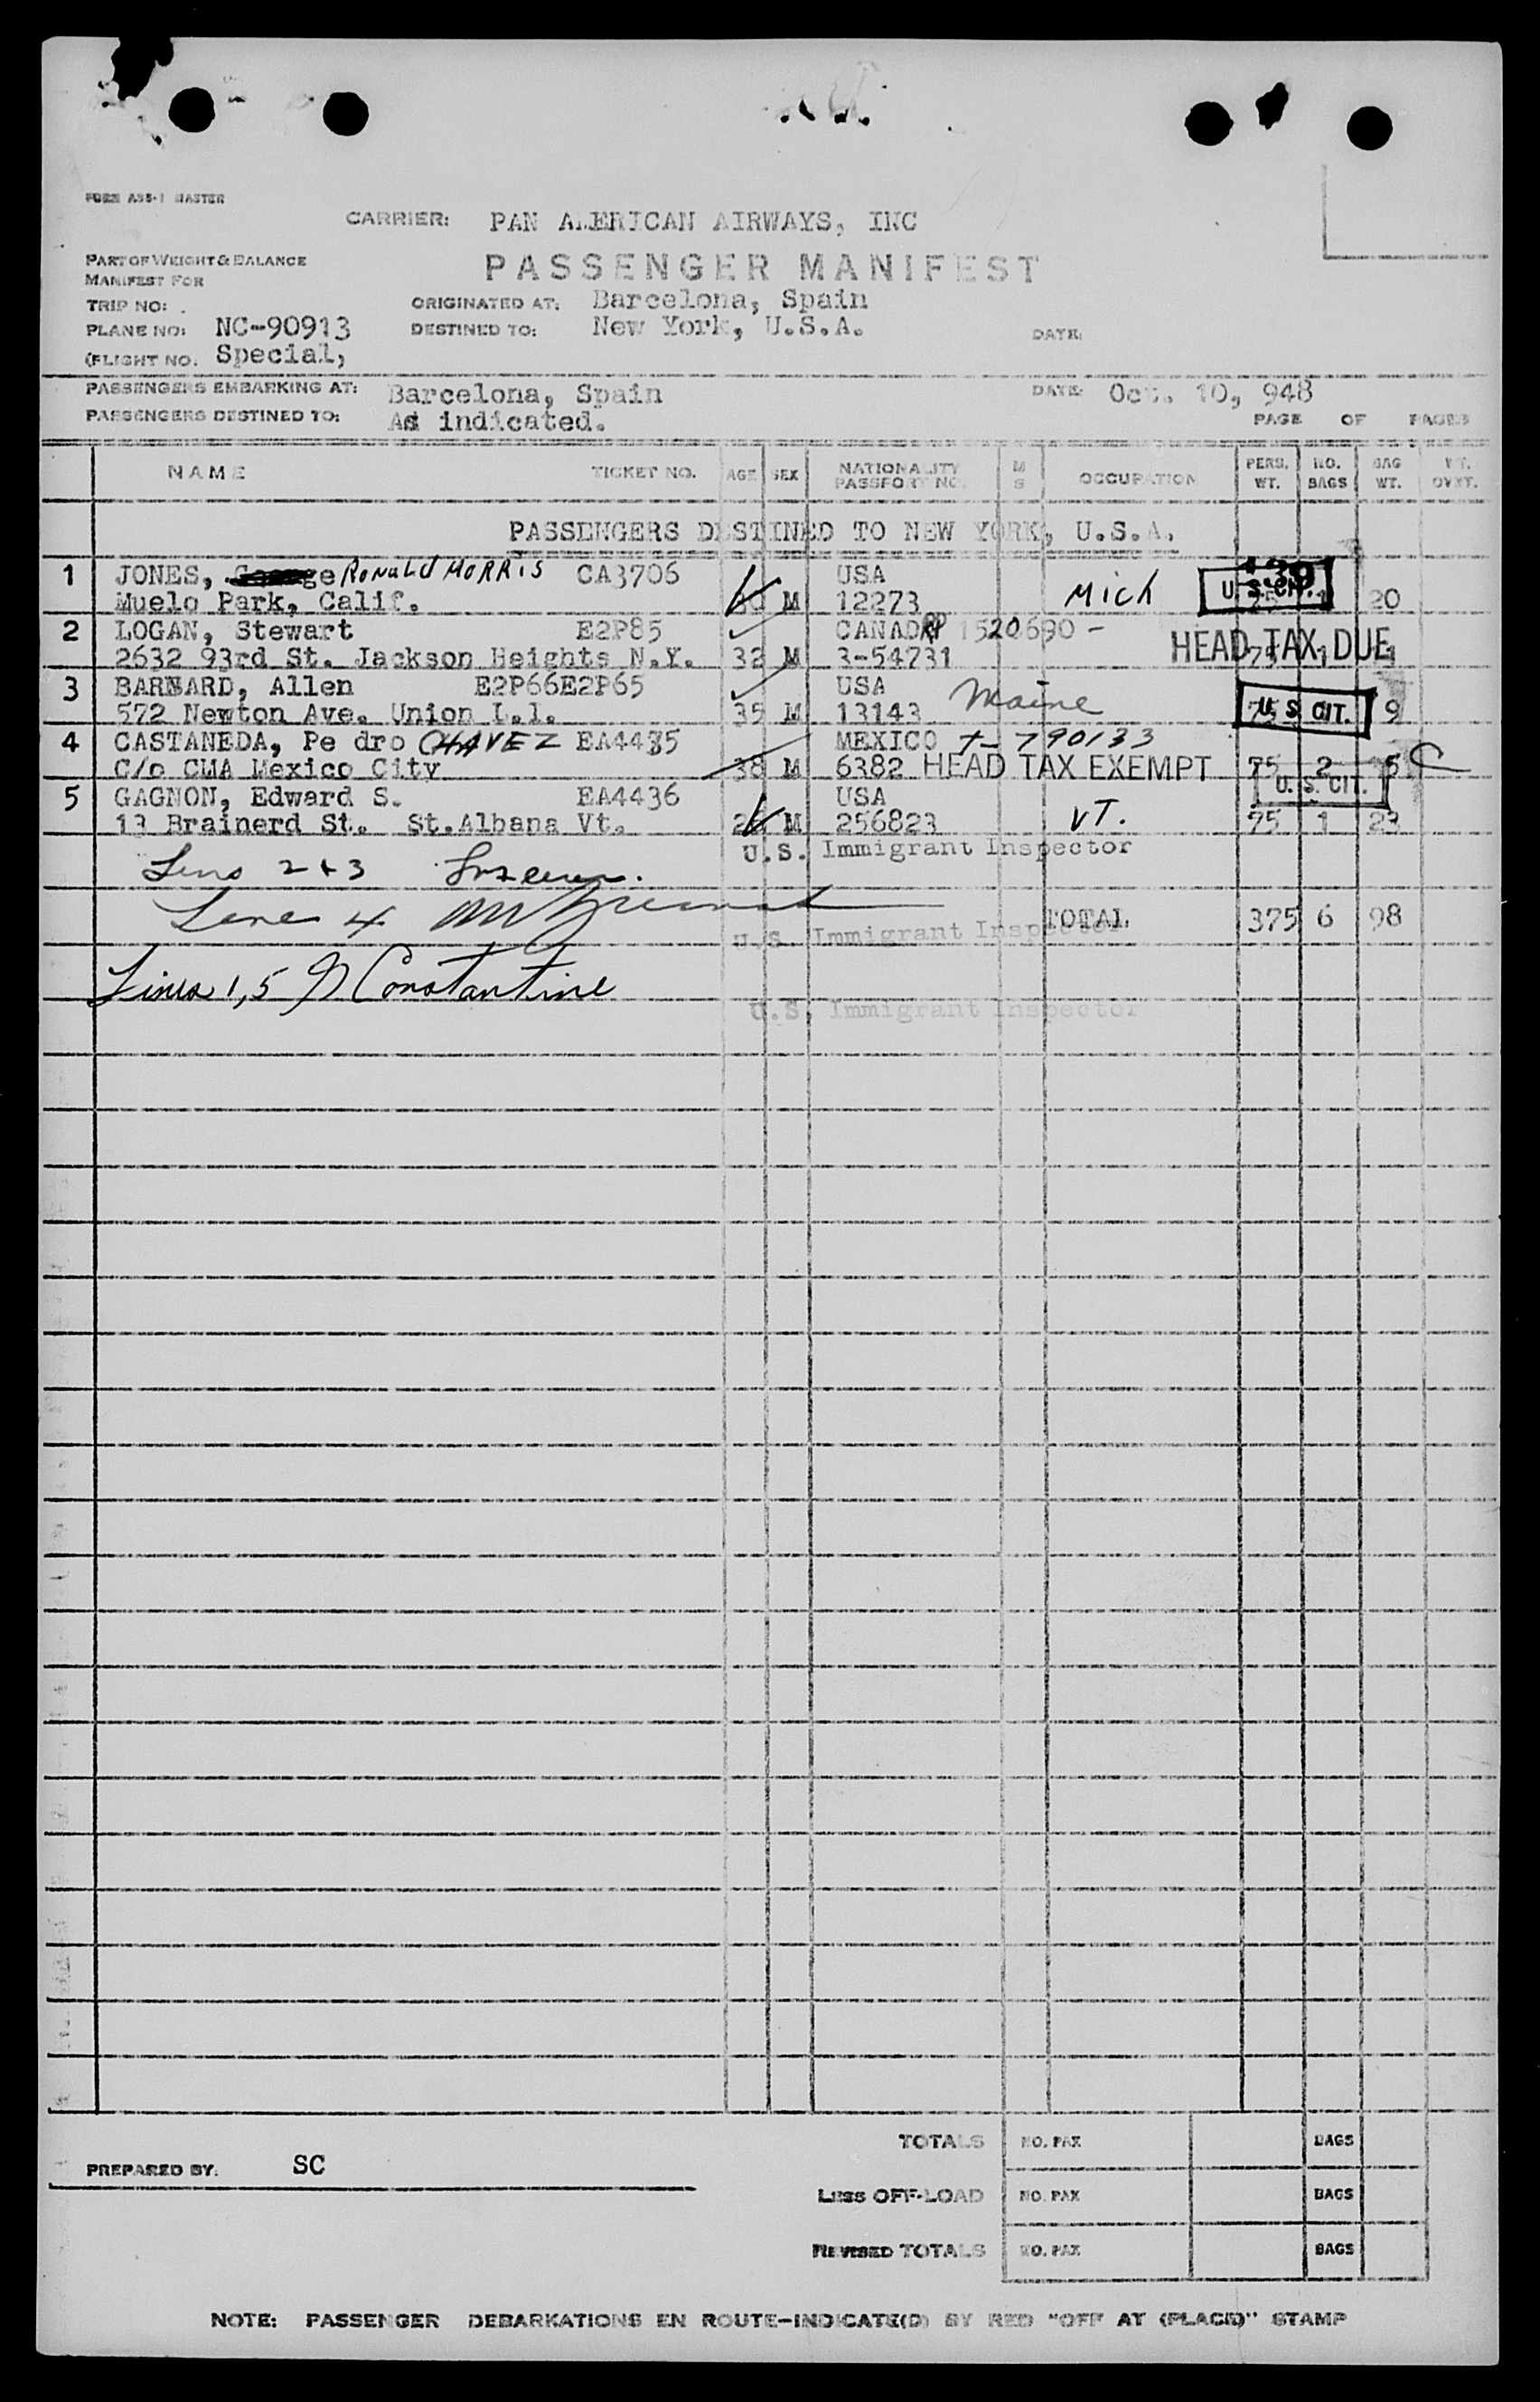 FORM ABS-1 MASTER
CARRIER: PAN AMERICAN AIRWAYS, INC
PART OF WEIGHT & BALANCE
MANIFEST FOR
PASSENGER MANIFEST
TRIP NO:
ORIGINATED AT: Barcelona, Spain
PLANE NO: NC-90913
DESTINED TO: New York, U.S.A.
DATE:
(FLIGHT NO. Special,
PASSENGERS EMBARKING AT: Barcelona, Spain
DATE: Oct. 10, 948
PASSENGERS DESTINED TO: As indicated.
PAGE OF PAGES
NAME TICKET NO. AGE SEX NATIONALITY PASSPORT NO. M S OCCUPATION PERS. WT. NO. BAGS BAG WT. WT. OVWT.
PASSENGERS DESTINED TO NEW YORK, U.S.A.
1 JONES, Ronald MORRIS CA3706 USA
Muelo Park, Calif. M 12273 Mich U.S. CIT. 20
2 LOGAN, Stewart E2P85 CANADA 1520690 -
2632 93rd St. Jackson Heights N.Y. 32 M 3-54731 HEAD TAX DUE
3 BARNARD, Allen E2P66E2P65 USA
572 Newton Ave. Union L.I. 35 M 13143 Maine U.S. CIT. 9
4 CASTANEDA, Pe dro CHAVEZ EA4435 MEXICO T- 790133
C/o CMA Mexico City 38 M 6382 HEAD TAX EXEMPT 75 2 C
5 GAGNON, Edward S. EA4436 USA U.S. CIT.
13 Brainerd St. St.Albans Vt. M 256823 VT. 75 1 23
U.S. Immigrant Inspector
Lines 2 & 3
Line 4
TOTAL 375 6 98
U.S. Immigrant Inspector
Lines 1, 5 Constantine
U.S. Immigrant Inspector
TOTALS NO. PAX BAGS
PREPARED BY. SC
LESS OFF-LOAD NO. PAX BAGS
REVISED TOTALS NO. PAX BAGS
NOTE: PASSENGER DEBARKATIONS EN ROUTE-INDICATE(D) BY RED "OFF AT (PLACE)" STAMP